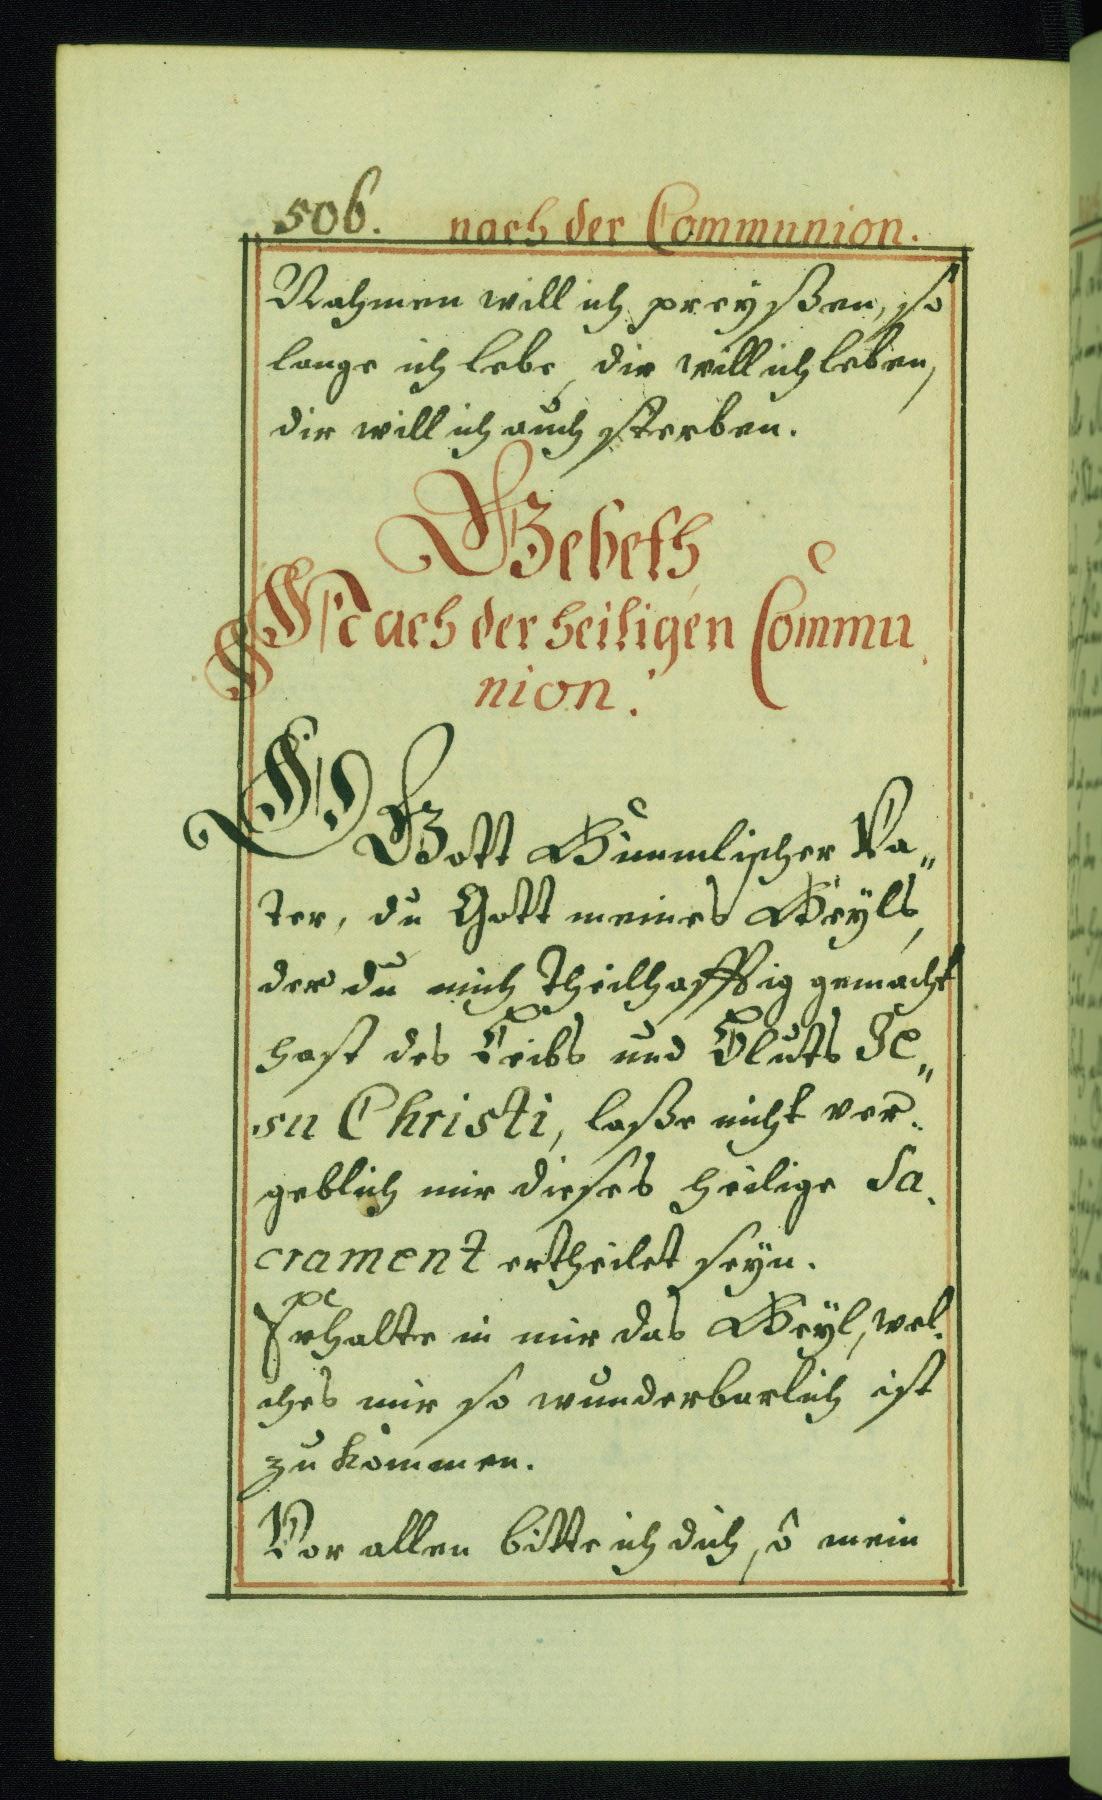 506. nach der Communion.
Nahmen will ich preyßen, so
lange ich lebe, dir will ich leben,
dir will ich auch sterben.
Gebeth
Nach der heiligen Commu
nion.
O Gott Himmlischer Va„
ter, du Gott meines Heyls,
der du mich theilhafftig gemacht
hast des Leibs und Bluts Je„
su Christi, laße nicht ver„
geblich mir dieses heilige Sa„
crament ertheilet seyn.
Erhalte in mir das Heyl, wel„
ches mir so wunderbarlich ist
zu kommen.
Vor allen bitte ich dich, ô mein